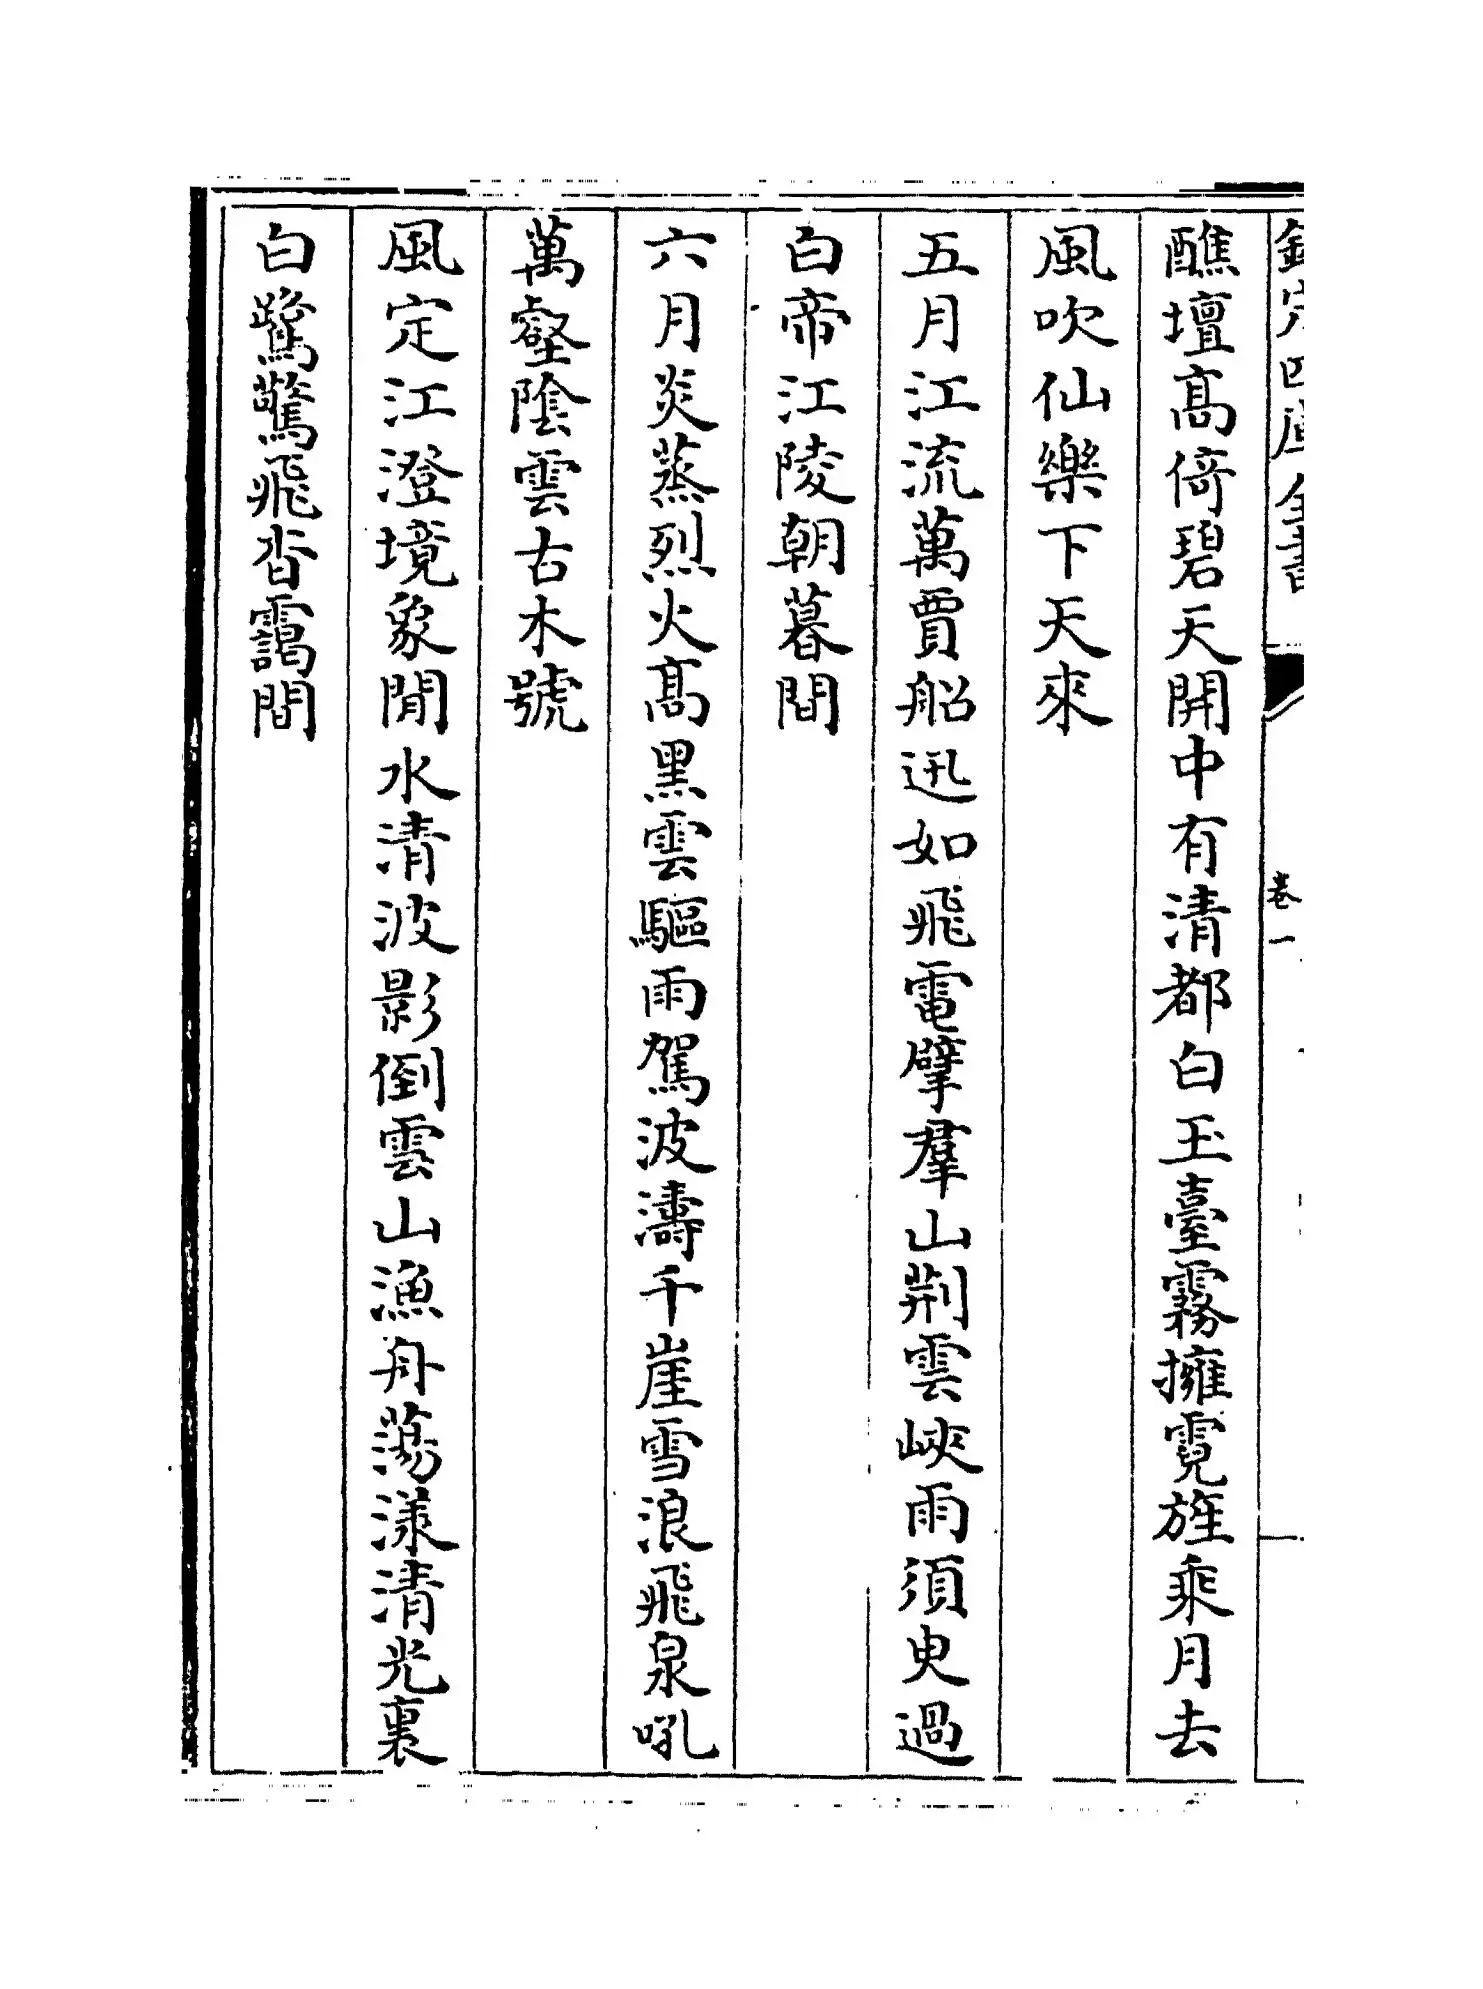 欽定四庫全書
卷一
醮壇髙倚碧天開中有清都白玉臺霧擁霓旌乘月去
風吹仙樂下天來
五月江流萬賈船迅如飛電擘羣山荆雲峽雨須臾過
白帝江陵朝暮間
六月炎蒸烈火髙黒雲驅雨駕波濤千崖雪浪飛泉吼
萬壑陰雲古木號
風定江澄境象閒水清波影倒雲山漁舟蕩漾清光裏
白鷺驚飛沓靄間